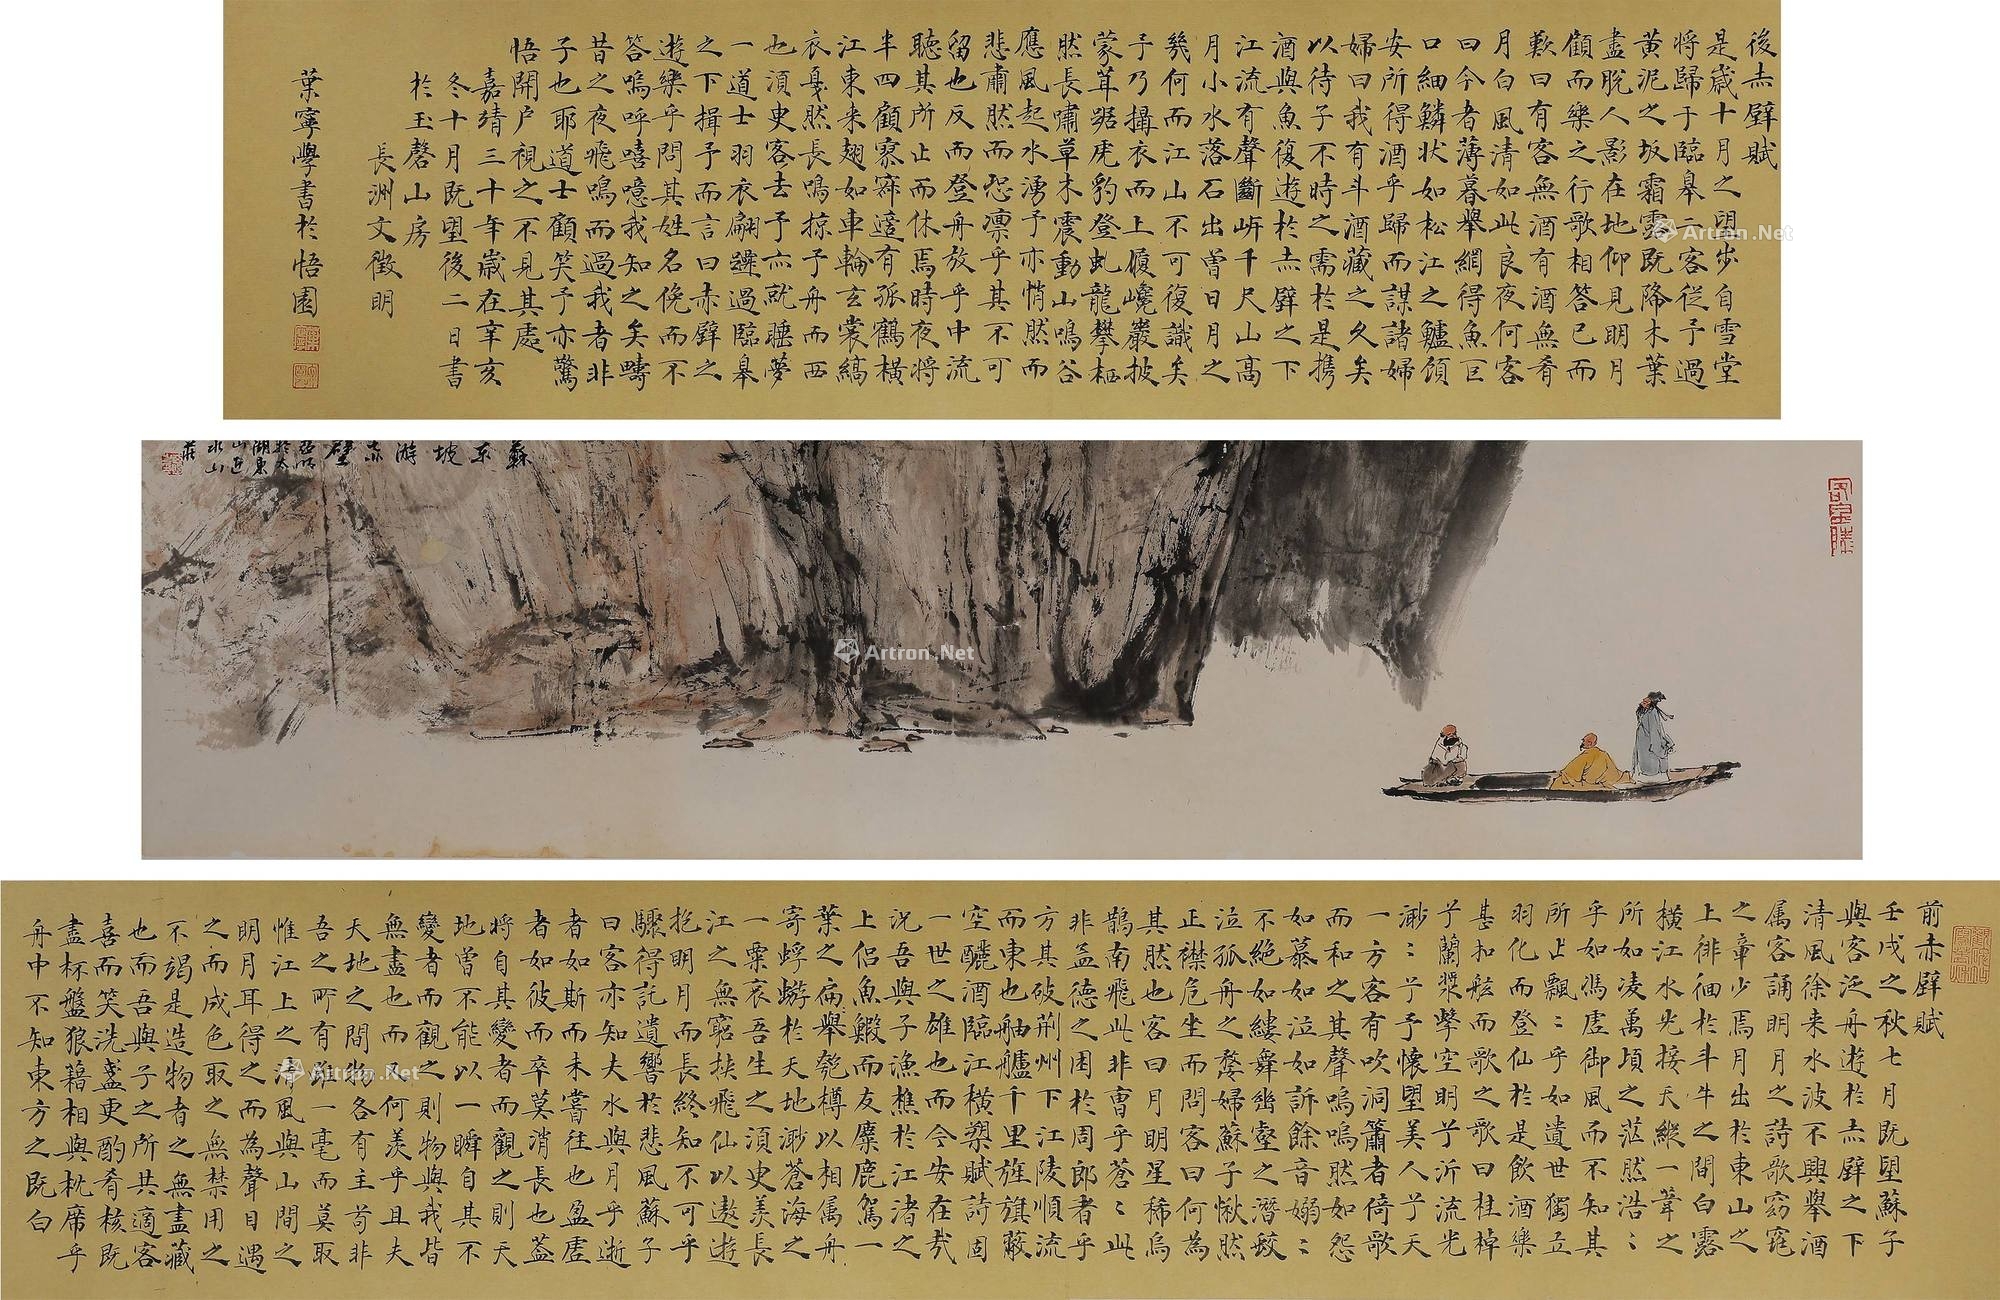 後赤壁賦
是歲十月之望步自雪堂
將歸于臨皋二客從予過
黃泥之坂霜露既降木葉
盡脫人影在地仰見明月
顧而樂之行歌相答已而
歎曰有客無酒有酒無肴
月白風清如此良夜何客
曰今者薄暮舉網得魚巨
口細鱗狀如松江之鱸顧
安所得酒乎歸而謀諸婦
婦曰我有斗酒藏之久矣
以待子不時之需於是携
酒與魚復遊於赤壁之下
江流有聲斷岸千尺山高
月小水落石出曾日月之
幾何而江山不可復識矣
予乃攝衣而上履巉巖披
蒙茸踞虎豹登虬龍攀栖
然長嘯草木震動山鳴谷
應風起水湧予亦悄然而
悲肅然而恐凛乎其不可
留也反而登舟放乎中流
聽其所止而休焉時夜將
半四顧寂寥適有孤鶴橫
江東来翅如車輪玄裳縞
衣戛然長鳴掠予舟而西
也須臾客去予亦就睡夢
一道士羽衣翩躚過臨皋
之下揖予而言曰赤壁之
遊樂乎問其姓名俛而不
答嗚呼嘻噫我知之矣疇
昔之夜飛鳴而過我者非
子也耶道士顧笑予亦驚
悟開户視之不見其處
嘉靖三十年歲在辛亥
冬十月既望後二日書
於玉磬山房
長洲文徵明
葉寧學書於悟園
蘇東坡游赤壁
亞明
於太
湖東
山近
水山
莊
前赤壁賦
壬戌之秋七月既望蘇子
與客泛舟遊於赤壁之下
清風徐来水波不興舉酒
属客誦明月之詩歌窈窕
之章少焉月出於東山之
上徘徊於斗牛之間白露
橫江水光接天縱一葦之
所如凌萬頃之茫然浩二
乎如馮虛御風而不知其
所止飄二乎如遺世獨立
羽化而登仙於是飲酒樂
甚扣舷而歌之歌曰桂棹
兮蘭槳擊空明兮泝流光
渺二兮予懷望美人兮天
一方客有吹洞簫者倚歌
而和之其聲嗚嗚然如怨
如慕如泣如訴餘音嫋二
不絕如縷舞幽壑之潛蛟
泣孤舟之嫠婦蘇子愀然
正襟危坐而問客曰何為
其然也客曰月明星稀烏
鵲南飛此非曹乎蒼二此
非孟德之困於周郎者乎
方其破荆州下江陵順流
而東也舳艫千里旌旗蔽
空釃酒臨江橫槊賦詩固
一世之雄也而今安在哉
況吾與子漁樵於江渚之
上侣魚鰕而友麋鹿駕一
葉之扁舉匏樽以相属舟
寄蜉蝣於天地渺蒼海之
一粟哀吾生之須臾羨長
江之無窮挾飛仙以遨遊
抱明月而長終知不可乎
驟得託遺響於悲風蘇子
曰客亦知夫水與月乎逝
者如斯而未嘗往也盈虛
者如彼而卒莫消長也蓋
將自其變者而觀之則天
地曾不能以一瞬自其不
變者而觀之則物與我皆
無盡也而又何羨乎且夫
天地之間物各有主苟非
吾之所有雖一毫而莫取
惟江上之清風與山間之
明月耳得之而為聲目遇
之而成色取之無禁用之
不竭是造物者之無盡藏
也而吾與子之所共適客
喜而笑洗盞更酌肴核既
盡杯盤狼藉相與枕席乎
舟中不知東方之既白
Artron.Net
Artron.Net
Artron.Net